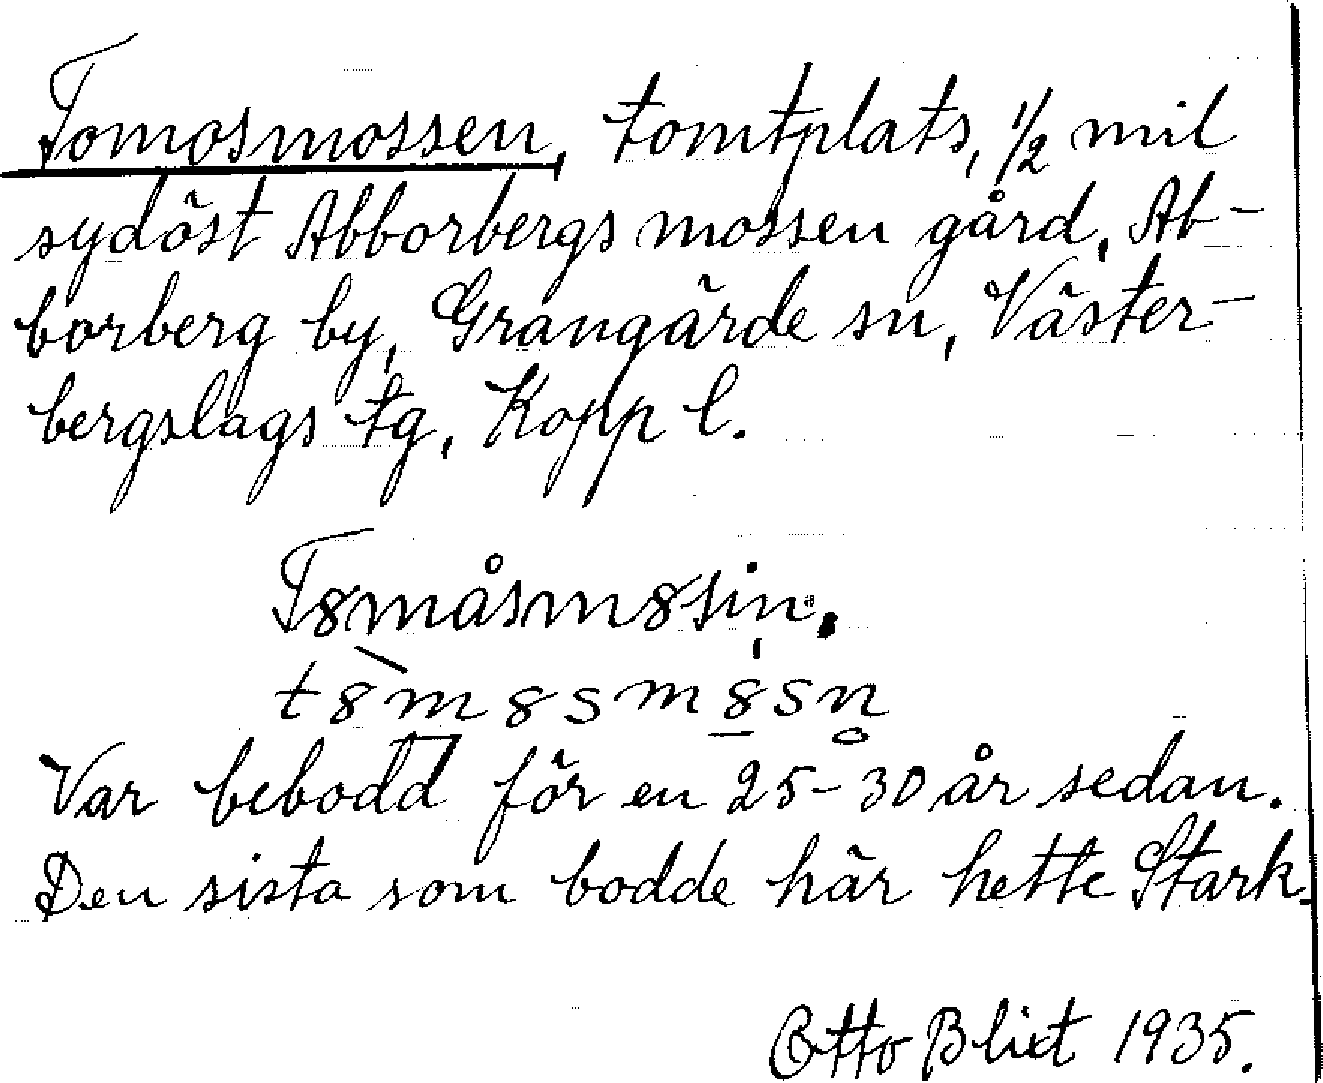 Tomosmossen, tomtplats, 1/2 mil
sydöst Abborbergsmossen gård, Ab-
borberg by, Grangärde sn, Väster-
bergslags tg, Kopp l.
T8måsm8sin.
t8̀m8sm8̩sn̥
Var bebodd för en 25-30 år sedan.
Den sista som bodde här hette Stark.
Otto Blixt 1935.